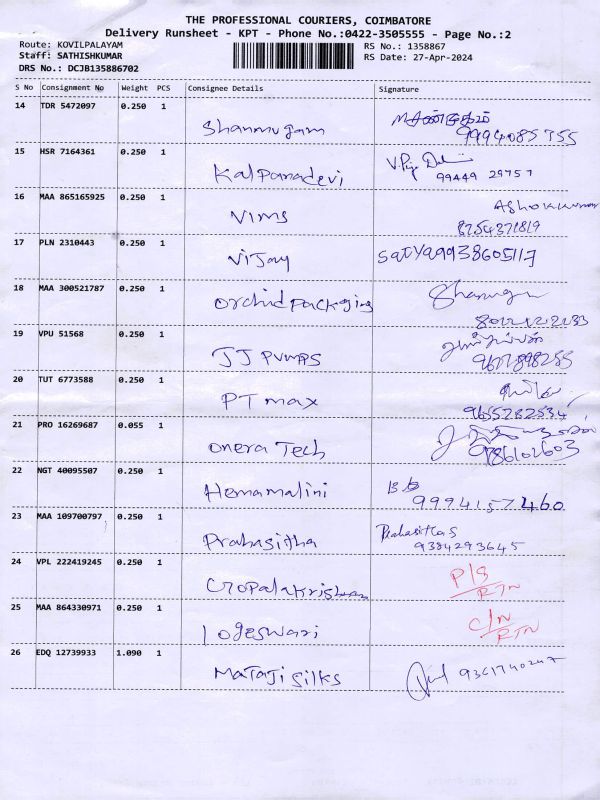 THE PROFESSIONAL COURIERS, COIMBATORE
Delivery Runsheet - KPT - Phone No.:0422-3505555 - Page No.:2
Route: KOVILPALAYAM
RS No.: 1358867
Staff: SATHISHKUMAR
RS Date: 27-Apr-2024
DRS No.: DCJB135886702
S No Consignment No Weight PCS Consignee Details Signature
14 TDR 5472097 0.250 1
Shanmugam 9994085755
15 HSR 7164361 0.250 1
Kalpanadevi 99449 29757
16 MAA 865165925 0.250 1
Vims Ashokkumar
8754371819
17 PLN 2310443 0.250 1
Vijay Satya 9993860511 7
18 MAA 300521787 0.250 1
Orchid packaging
19 VPU 51568 0.250 1
JJ PUMPS
20 TUT 6773588 0.250 1
PT max 9655282534
21 PRO 16269687 0.055 1
Onera Tech 9786102603
22 NGT 40095507 0.250 1
Hemamalini 9994157460
23 MAA 109700797 0.250 1
Prahasitha Prahasitha S
9384293645
24 VPL 222419245 0.250 1
Gopalakrishnan P/S
RTN
25 MAA 864330971 0.250 1
logeswari C/N
RTN
26 EDQ 12739933 1.090 1
Mataji silks 9361740247